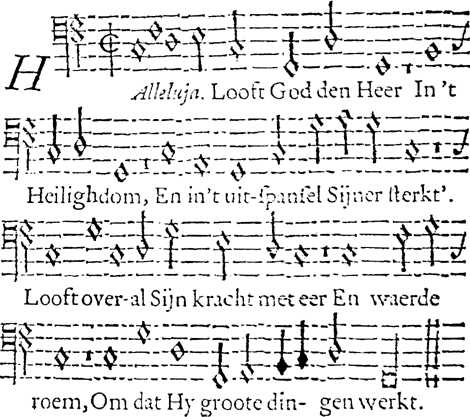 H
Alleluja. Looft God den Heer In 't
Heilighdom, En in't uit-ſpanſel Sijner ſterkt'.
Looft over-al Sijn kracht met eer En waerde
roem, Om dat Hy groote din- gen werkt.